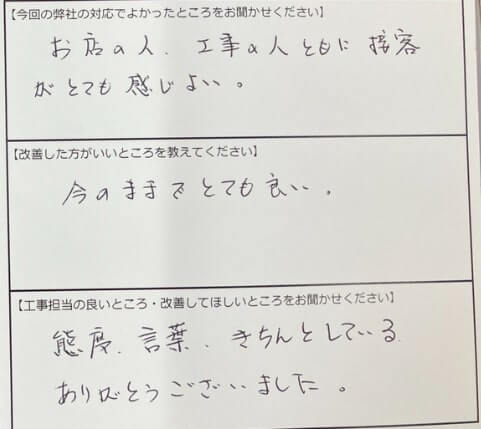 【今回の弊社の対応でよかったところをお聞かせください】
お店の人、工事の人ともに接客
がとても感じよい。
【改善した方がいいところを教えてください】
今のままでとても良い。
【工事担当の良いところ・改善してほしいところをお聞かせください】
態度、言葉、きちんとしている
ありがとうございました。